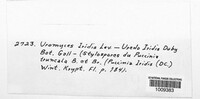 2723. Uromyces Iridis Lev — Uredo Iridis Duby
Bot. Gall — (Stylosporis du Puccinia
truncata B. et Br. (Puccinia Iridis (DC.)
Wint. Krypt. Fl. p. 184).
1009383